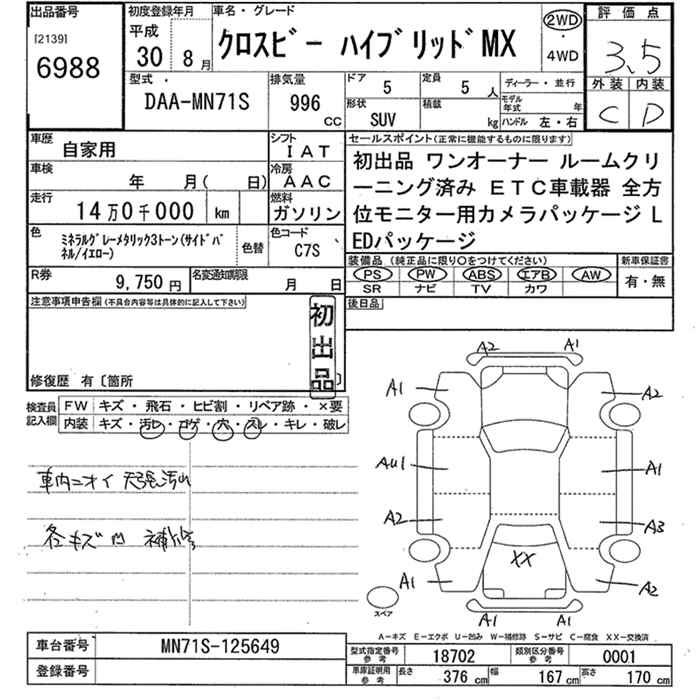 出品番号
[2139]
6988
初度登録年月
平成
30 8月
車名・グレード
クロスビー ハイブリッドMX
2WD
・
4WD
評価点
3.5
外装 内装
C D
型式・
DAA-MN71S
排気量
996
CC
ドア
5
定員
5人
形状
SUV
積載
kg
ディーラー・並行
モデル年式 年
ハンドル 左・右
車歴
自家用
シフト
IAT
車検
年 月( 日)
冷房
AAC
走行
14万0千000 km
燃料
ガソリン
色
ミネラルグレーメタリック3トーン(サイドパ
ネル/イエロー)
色替
色コード
C7S
R券
9,750円
名変通知期限
月 日
セールスポイント(正常に機能するものに限ります)
初出品 ワンオーナー ルームクリ
ーニング済み ETC車載器 全方
位モニター用カメラパッケージ L
EDパッケージ
装備品 (純正品に限り○をつけてください)
PS PW ABS エアB AW
SR ナビ TV カワ
新車保証書
有・無
後日品
注意事項申告欄(不具合内容等は具体的に記入して下さい)
初出品
修復歴 有〔箇所 〕
検査員
記入欄
FW キズ・飛石・ヒビ割・リペア跡・×要
内装 キズ・汚レ・コゲ・穴・スレ・キレ・破レ
車内ニオイ 天張汚れ
各キズ凹 補修
A2 A1
A1 A2
AU1 A1
A2 A3
XX
A1 A2
スペア
A1 A1
A-キズ E-エクボ U-凹み W-補修跡 S-サビ C-腐食 XX-交換済
車台番号
MN71S-125649
登録番号
型式指定番号
参考
18702
類別区分番号
参考
0001
車庫証明用
参考
長さ
376 cm
幅
167 cm
高さ
170 cm